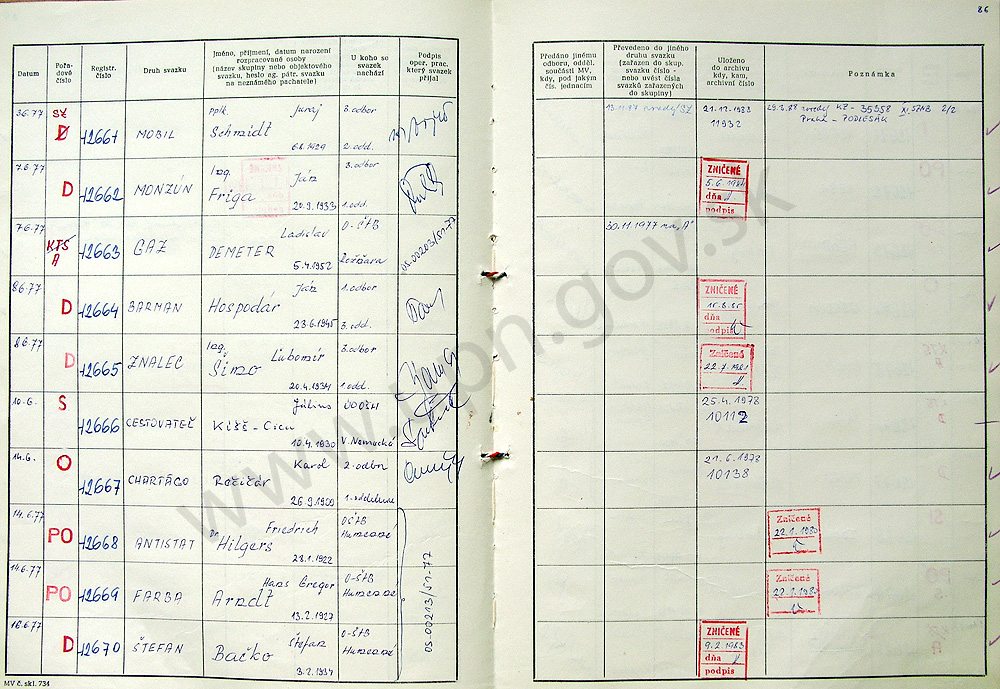 86
Datum
Pořadové číslo
Registr. číslo
Druh svazku
Jméno, příjmení, datum narození
rozpracované osoby
(název skupiny nebo objektového
svazku, heslo ag. pátr. svazku
na neznámého pachatele)
U koho se
svazek
nachází
Podpis
oper. prac.
který svazek
přijal
Předáno jinému
odboru, odděl.
součásti MV,
kdy, pod jakým
čís. jednacím
Převedeno do jiného
druhu svazku
(zařazen do skup.
svazku číslo -
nebo uvést čísla
svazků zařazených
do skupiny)
Uloženo
do archivu
kdy, kam,
archivní číslo
Poznámka
3.6.77 SZ 12661 MOBIL pplk. Juraj Schmidt 1929 3. odbor 2. odd.
21.12.1983 11932
Praha - PODLESÁK
7.6.77 D 12662 MONZÚN Ing. Ján Friga 20.9.1933 3. odbor 1. odd.
ZNIČENÉ
dňa
podpis
7.6.77 KTS A 12663 GAZ Ladislav DEMETER 5.4.1952 O-ŠtB OS-00203/S1-77
30.11.1977 na "A"
8.6.77 D 12664 BARMAN Ján Hospodár 23.6.1945 1. odbor 3. odd.
ZNIČENÉ
dňa
podpis
8.6.77 D 12665 ZNALEC Ing. Ľubomír Šimo 20.4.1934 3. odbor 1. odd.
Zničené
22.7.1981
10.6. S 12666 CESTOVATEĽ Július Kišš-Cicu 10.4.1930 V. Nemecká
25.4.1978
10112
14.6. O 12667 CHARTÁGO Karol 26.9.1900 2. odbor 1. oddelenie
21.6.1978
10138
14.6.77 PO 12668 ANTISTAT Dr. Friedrich Hilgers 28.1.1922 OŠtB Humenné
Zničené
22.1.1980
14.6.77 PO 12669 FARBA Hans Gregor Arndt 13.2.1927 O-ŠtB Humenné
OS-00213/S1-77
Zničené
22.1.1980
16.6.77 D 12670 ŠTEFAN Štefan Bačko 3.2.1934 O-ŠtB Humenné
ZNIČENÉ
9.2.1983
dňa
podpis
MV č. skl. 734
www.upn.gov.sk